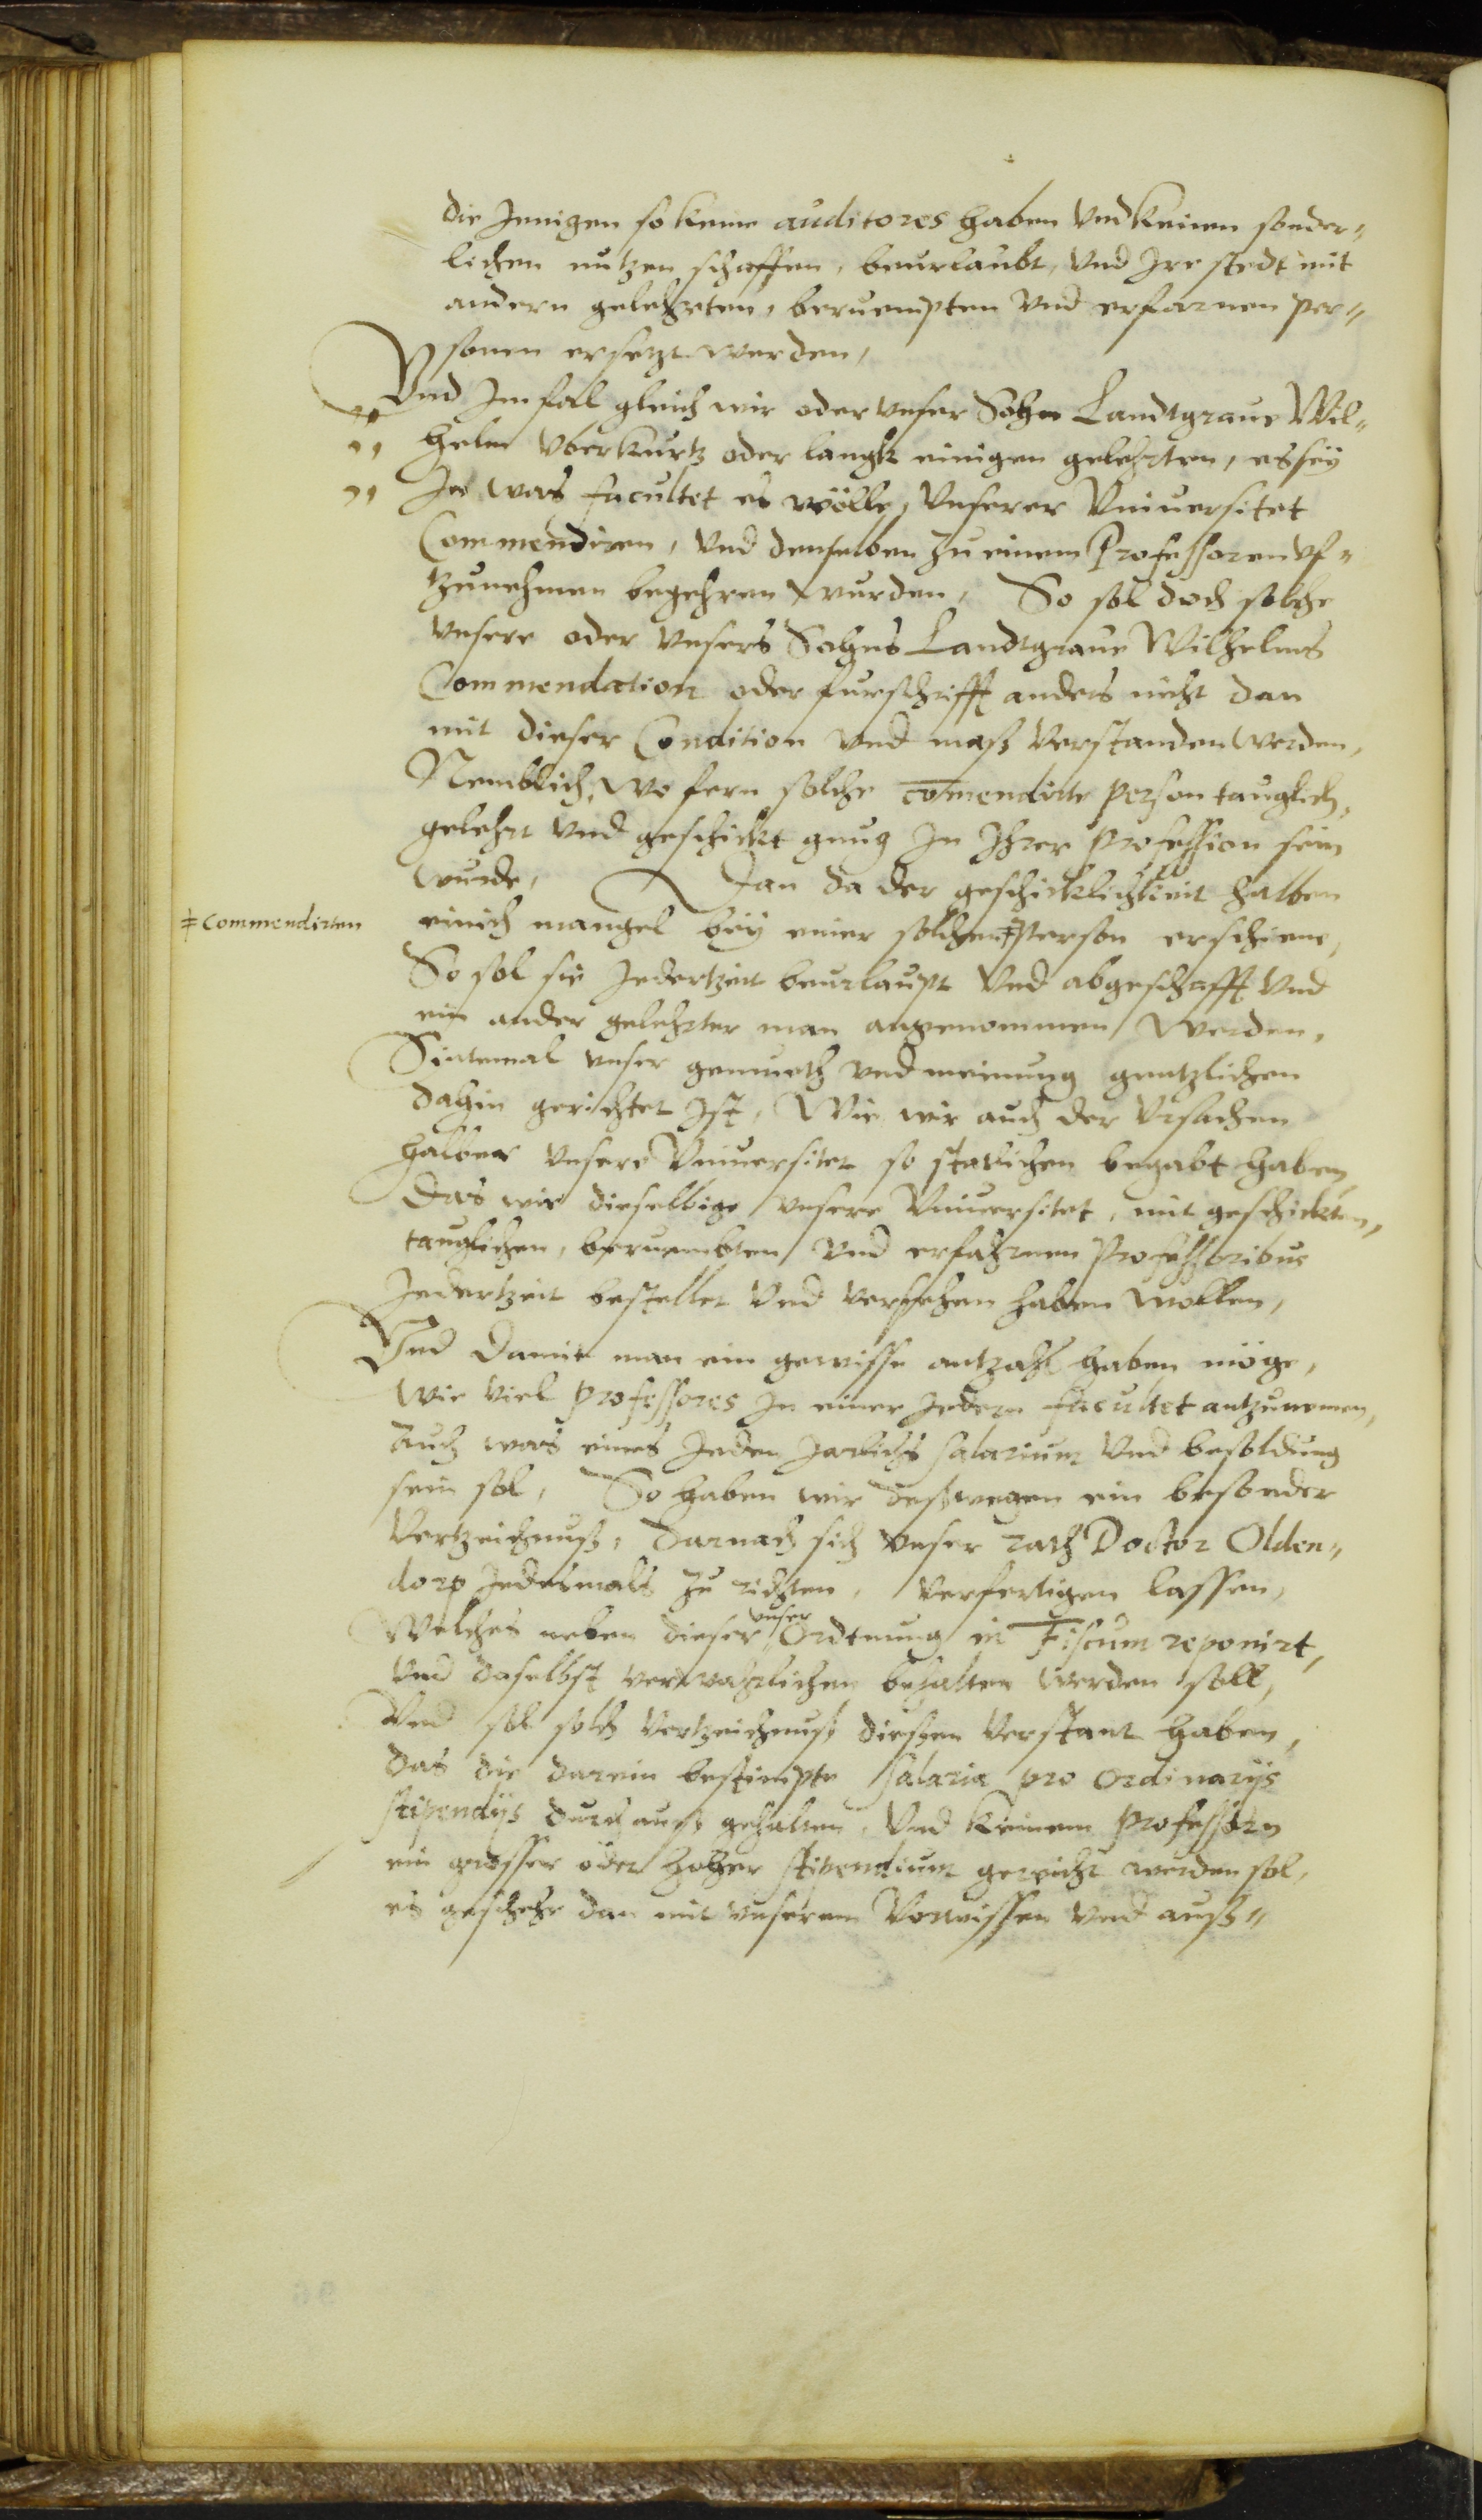 die Jenigen so keine auditores haben vnd keinen sonder„
lichen nutzen schaffen, beurlaubt, vnd Jre stedt mit
andern gelehrten, beruempten vnd erfarnen per„
sonen ersetzt werden,
Vnd Jm fal gleich wir oder vnser Sohn Landtgraue Wil„
„ helm vber kurtz oder langk einigen gelehrten, es sey
„ Jn was facultet es wölle, vnserer Vniuersitet
Commendiren, vnd denselben zu einem Professoren vf„
tzunehmen begehren wurden, So sol doch solche
vnsere oder vnsers Sohns Landtgraue Wilhelms
Commendation oder furschrifft anders nicht dan
mit dieser Condition vnd maß verstanden werden,
Nemblich, wo fern solche comendirte person tauglich,
gelehrt vnd geschickt gnug Jn Jhrer profession sein
wurde, Dan da der geschicklichkeit halben
einich mangel bey einer solchen ‡ Person erschiene,
‡ Commendirten
So sol sie Jedertzeit beurlaupt vnd abgeschafft vnd
ein ander gelehrter man angenommen werden,
Sintemal vnser gemueth vnd meinung gentzlichen
dahin gerichtet Jst, Wie wir auch der vrsachen
halber vnsere Vniuersitet so statlichen begabt haben,
Das wir dieselbige vnsere Vniuersitet, mit geschickten,
tauglichen, beruembten vnd erfahrnen Professoribus
Jedertzeit bestellet vnd versehen haben wollen,
Vnd damit man ein gewisse antzahl haben möge,
wie viel professores Jn einer Jedern facultet antzunemen,
auch was eines Jeden Jarlichs salarium vnd besoldung
sein sol, So haben wir deßwegen ein besonder
Vertzeichnuß, darnach sich vnser rath Doctor Olden„
dorp Jedesmals zu richten, verfertigen lassen,
Welches neben dieser vnser Ordtnung in Fiscum reponirt,
vnd daselbst verwahrlichen behalten werden soll,
Vnd sol solch Vertzeichnuß diesen verstant haben,
das die darein bestimpte salaria pro ordinarijs
stipendijs durchauß gehalten, vnd keinem professorn
ein grosser oder hoher stipendium gereicht werden sol,
es geschehe dan mit vnserem Vorwissen vnd auß„